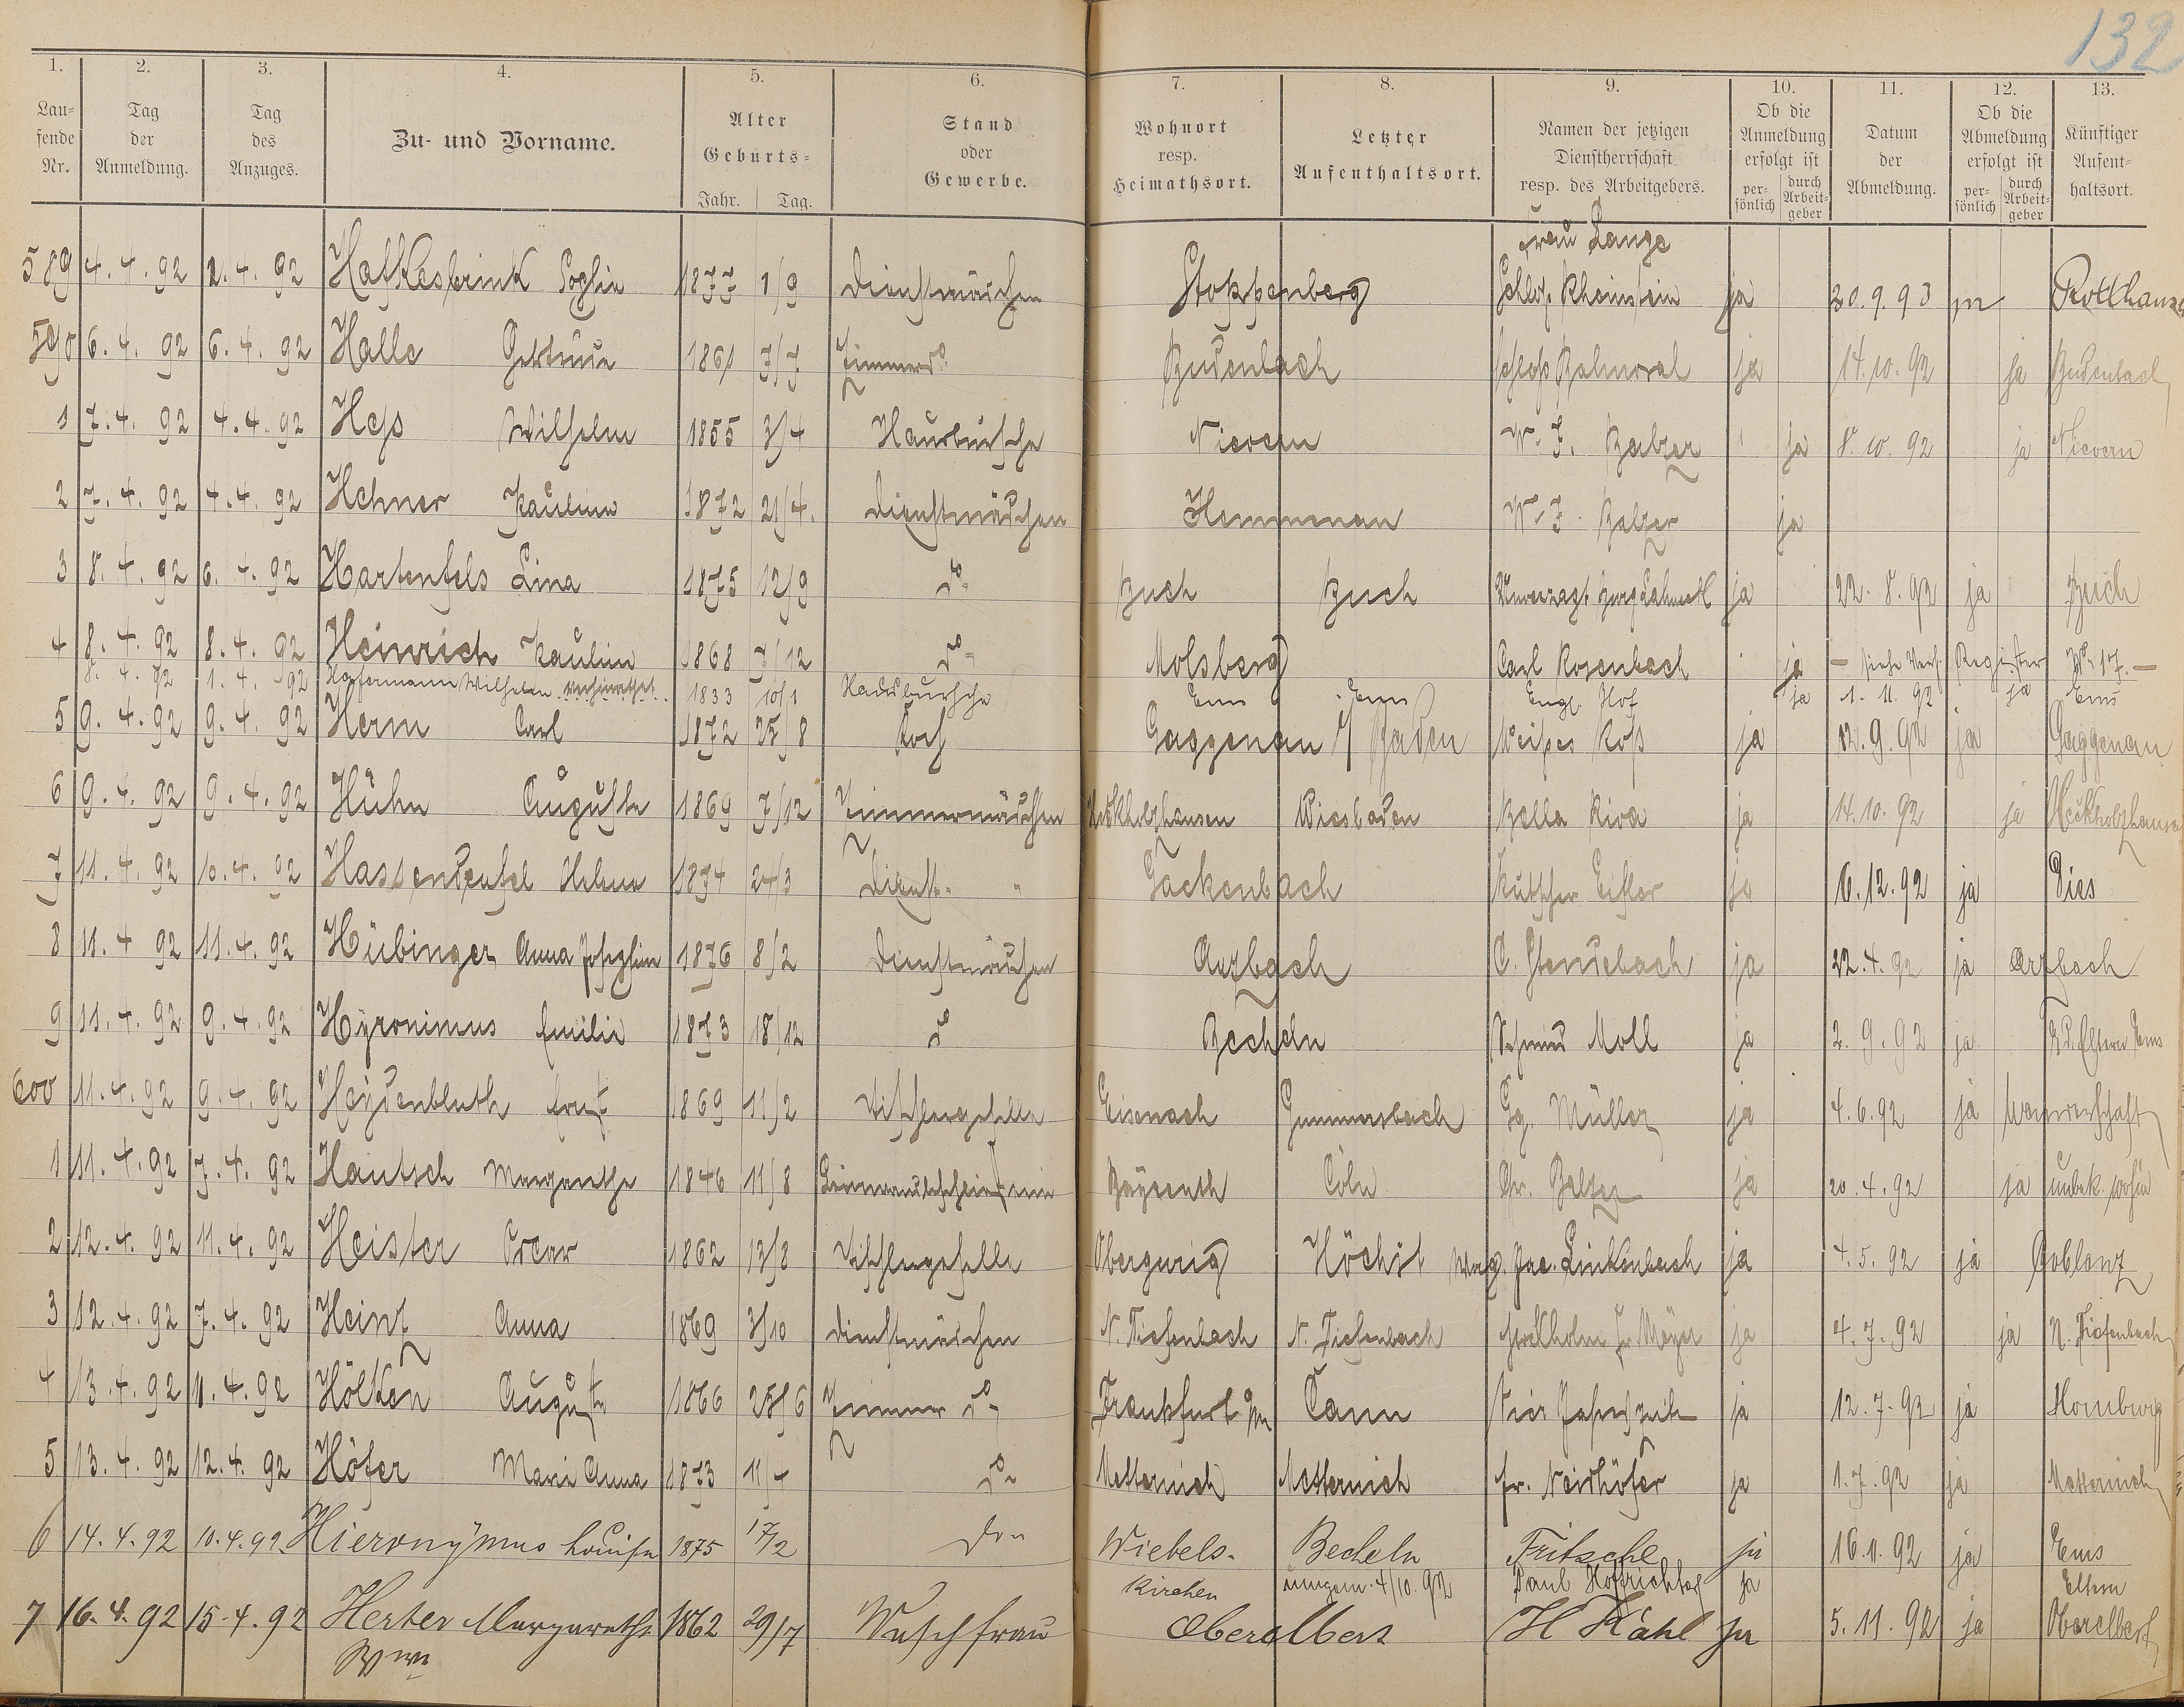 132
1. 2. 3. 4. 5. 6. 7. 8. 9. 10. 11. 12. 13.
Lau=fende Nr. Tag der Anmeldung. Tag des Anzuges. Zu- und Vorname. Alter Geburts= Jahr. Tag. Stand oder Gewerbe. Wohnort resp. Heimathsort. Letzter Aufenthaltsort. Namen der jetzigen Dienstherrschaft resp. des Arbeitgebers. Ob die Anmeldung erfolgt ist per=sönlich durch Arbeit=geber Datum der Abmeldung. Ob die Abmeldung erfolgt ist per=sönlich durch Arbeit=geber Künftiger Aufent=haltsort.
Frau Lange
589 4.4.92 2.4.92 Hafkesbrink Sophie 1877 1/9 Dienstmädchen Stoppenberg Schloß Rheinstein ja 20.9.93 Rotthausen
590 6.4.92 6.4.92 Halle Gertrude 1861 7/7 Zimmer do Budenbach Schloß Balmoral ja 14.10.92 ja Budenbach
1 7.4.92 4.4.92 Hess Wilhelm 1855 3/4 Hausbursche Nievern W. F. Balzer ja 8.10.92 ja Nievern
2 7.4.92 4.4.92 Hehner Pauline 1872 21/4. Dienstmädchen Hemmenau W. F. Balzer ja
3 8.4.92 6.4.92 Hartenfels Lina 1875 12/9 do Buch Buch ja 22.8.92 ja Buch
4 8.4.92 8.4.92 Heinrich Pauline 1868 7/12 do Molsberg Carl Rosenbach ja — siehe Register No 17. —
8.4.92 1.4.92 Wilhelm 1833 10/1 Hausbursche Ems Ems Engl. Hof ja 1.11.92 ja Ems
5 9.4.92 9.4.92 Herm Carl 1872 25/8 Koch Gaggenau i/ Baden Weißes Roß ja 12.9.92 ja Gaggenau
6 9.4.92 9.4.92 Huhn Auguste 1869 7/12 Zimmermädchen Heckholzhausen Wiesbaden Bella Riva ja 14.10.92 ja Heckholzhausen
7 11.4.92 10.4.92 Hassenteufel Helene 1874 24/3 Dienst- " Gackenbach Kutscher Eifler ja 6.12.92 ja Dies
8 11.4.92 11.4.92 Hübinger Anna Josephine 1876 8/2 Dienstmädchen Arzbach C. Stendebach ja 22.4.92 ja Arzbach
9 11.4.92 9.4.92 Hyronimus Emilie 1873 18/12 do Becheln Schmied Moll ja 2.9.92 ja Z. d. Eltern Ems
600 11.4.92 9.4.92 Heydenbluth Ernst 1869 11/2 Tischlergeselle Eisenach Gummersbach Gg. Müller ja 4.6.92 ja Wanderschaft
1 11.4.92 7.4.92 Hautsch Margarethe 1846 11/8 Bayreuth Cöln Fr. Balzer ja 20.4.92 ja unbek. wohin
2 12.4.92 11.4.92 Heister Oscar 1862 13/8 Tischlergeselle Obergurig Höchst Jac. Linkenbach ja 4.5.92 ja Coblenz
3 12.4.92 7.4.92 Heinz Anna 1869 3/10 Dienstmädchen N. Tiefenbach N. Tiefenbach Stockholm Fr. Meyer ja 4.7.92 ja N. Tiefenbach
4 13.4.92 11.4.92 Hölken Auguste 1866 25/6 Zimmer do Frankfurt a/M Cann Vier Jahreszeiten ja 12.7.92 ja Homburg
5 13.4.92 12.4.92 Höfer Maria Anna 1873 11/4 do Metternich Metternich Fr. Neidhöfer ja 1.7.92 ja Metternich
6 14.4.92 10.4.92 Hieronymus Louise 1875 17/2 do Wiebels- Becheln Fritsche ja 16.11.92 ja Ems
kirchen umgem. 4/10.92 Paul Hofrichter ja Eltern
7 16.4.92 15.4.92 Herber Margarethe 1862 29/7 Waschfrau Oberelbert H Kahl ja 5.11.92 ja Oberelbert
Wwe